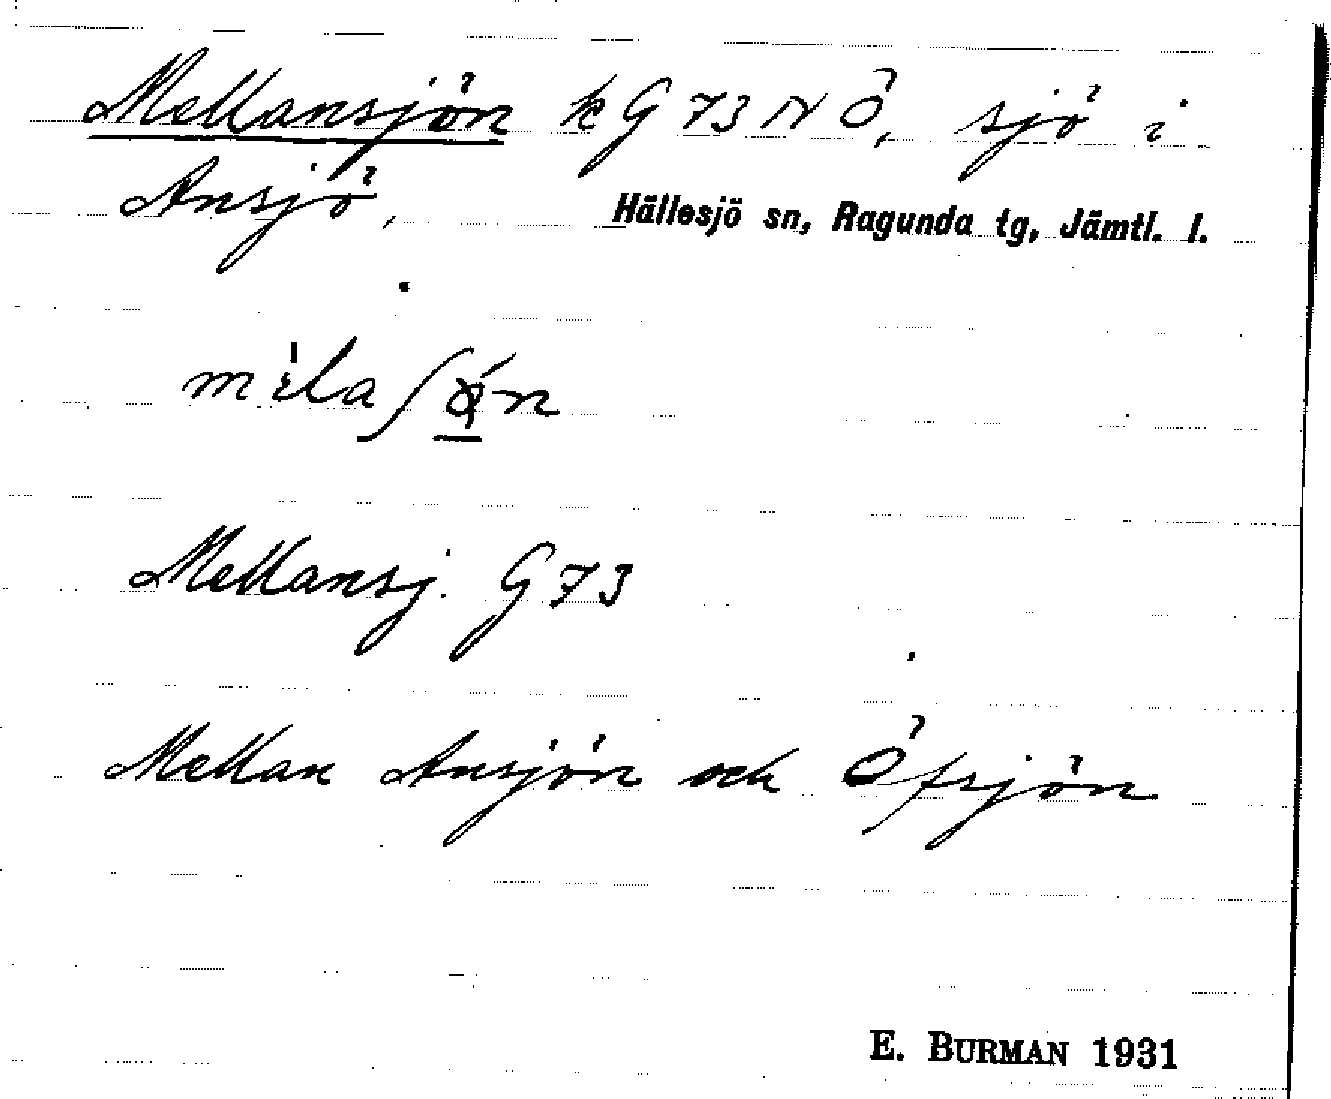 Mellansjön k G 73 N Ö, sjö i
Ansjö, Hällesjö sn, Ragunda tg, Jämtl. l.
Mellansj. G 73
Mellan Ansjön och Öfsjön
E. BURMAN 1931